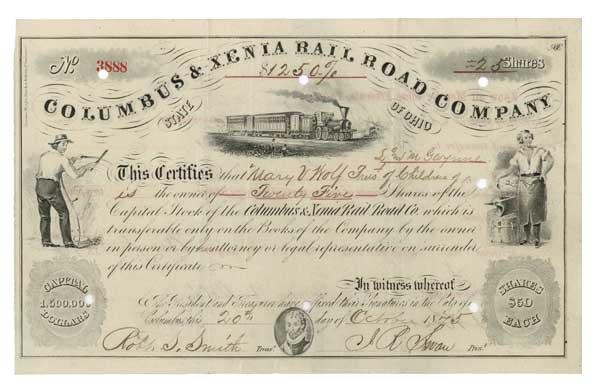 No. 3888
$1250%
25 Shares
COLUMBUS & XENIA RAIL ROAD COMPANY
STATE OF OHIO
Lyd M Gwynne
This Certifies that Mary V Wolf Trus. of Children of
is the owner of Twenty Five Shares of the
Capital Stock of the Columbus & Xenia Rail Road Co. which is
transferable only on the Books of the Company by the owner
in person or by attorney or legal representative on surrender
of this Certificate
In witness whereof
The President and Treasurer have affixed their Signatures in the City of
Columbus this 20th day of Octbr 1875
CAPITAL
1.500,000
DOLLARS
SHARES
$50
EACH
Robt. S. Smith Treasr.
J. R. Swan Prest.